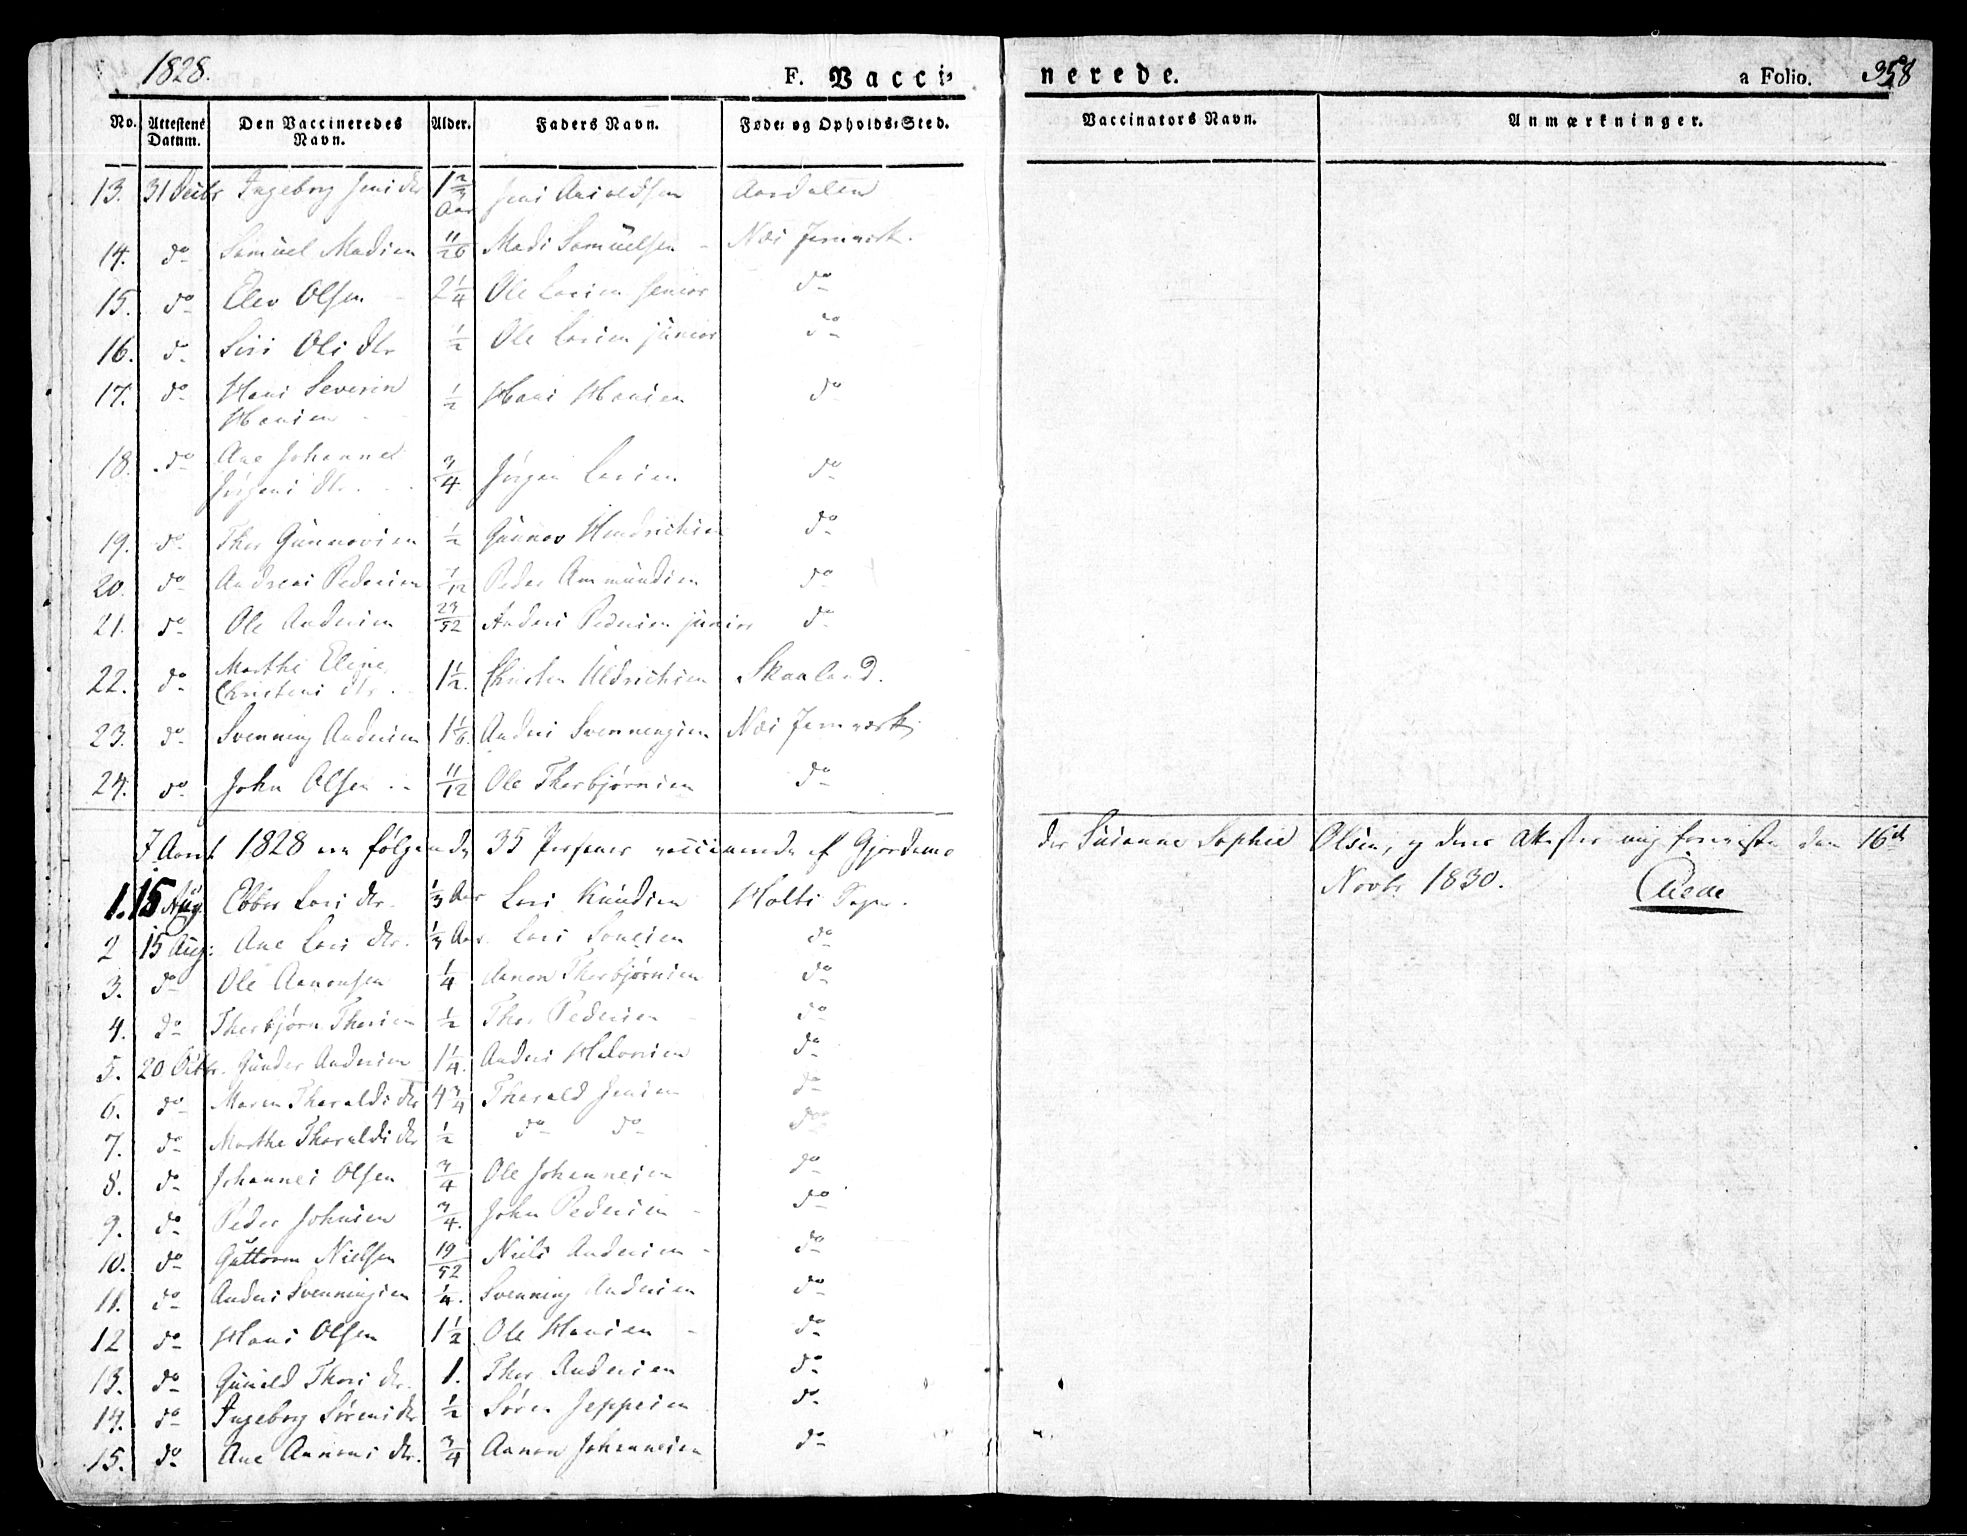 1828.
F. Vacci-
nerede.
a Folio. 358
No. Attestens Datum. Den Vaccineredes Navn. Alder. Faders Navn. Føde- og Opholds-Sted. Vaccinators Navn. Anmærkninger.
13. 31 Decbr Ingeborg Jens dtr 1 2/3 Aar Jens Aasoldsen Aardalen
14. do Samuel Madsen 11/26 Mads Samuelsen Næs Jernværk.
15. do Elev Olsen 2 1/4 Ole Larsen senior do
16. do Siri Ols dtr 1/2 Ole Larsen junior do
17. do Hans Severin 1/2 Hans Hansen do
Hansen
18. do Ane Johanne
Jørgens dtr. 3/4 Jørgen Larsen do
19. do Thor Gunnovsen 1/2 Gunnov Hendrichsen do
20. do Andreas Pedersen 7/12 Peder Ammundsen do
21. do Ole Andersen 23/52 Anders Pedersen junior do
22. do Marthe Eline
Christens dtr. 1 1/2. Christen Uldrichsen Skaaland.
23. do Svenning Andersen 1 1/6. Anders Svenningsen Næs Jernværk
24. do John Olsen 11/12 Ole Therbjørnsen do
I Aaret 1828 ere følgende 35 Personer vaccinerede af Gjordemo
der Susanne Sophie Olsen, og dens Attester mig foreviste den 16de
Novbr. 1830.
1. 15 Aug. Ebber Lars dtr. 1/3 Aar Lars Knudsen Holts Sogn.
2 15 Aug: Ane Lars dtr. 1/3 Aar. Lars do
3. do Ole Aanonsen 1/4 Aanon Therbjørnsen do
4. do Therbjørn Thorsen 1/2 Thor Pedersen do
5. 20 Octbr. Gunder Andersen 1 1/4. Anders Halvorsen do
6. do Maren Tharalds dtr 4 3/4 Tharald Jensen do
7. do Marthe Tharalds dtr 1/2 do do do
8. do Johannes Olsen 3/4 Ole Johannesen do
9. do Peder Johnsen 3/4. John Pedersen do
10. do Guttorm Nielsen 19/52 Niels Andersen do
11. do Anders Svenningsen 1/4. Svenning Andersen do
12 do Hans Olsen 1 1/2 Ole Hansen do
13. do Gunild Thors dtr. 1. Thor Andersen do
14. do Ingeborg Sørens dtr 1/2 Søren Jeppesen do
15. do Ane Aanons dtr. 3/4 Aanon Johannesen do